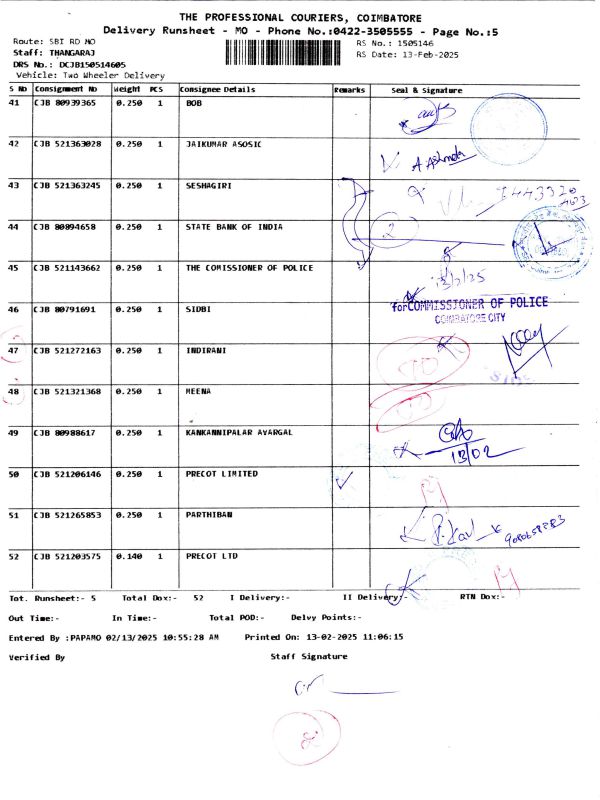 THE PROFESSIONAL COURIERS, COIMBATORE
Delivery Runsheet - MO - Phone No.:0422-3505555 - Page No.:5
Route: SBI RD MO
RS No.: 1505146
Staff: THANGARAJ
RS Date: 13-Feb-2025
DRS No.: DCJB150514605
Vehicle: Two Wheeler Delivery
S No Consignment No Weight PCS Consignee Details Remarks Seal & Signature
41 CJB 80939365 0.250 1 BOB
42 CJB 521363028 0.250 1 JAIKUMAR ASOSIC
A Ashmda
43 CJB 521363245 0.250 1 SESHAGIRI
44 CJB 80894658 0.250 1 STATE BANK OF INDIA
2
45 CJB 521143662 0.250 1 THE COMISSIONER OF POLICE
13/2/25
46 CJB 80791691 0.250 1 SIDBI
for COMMISSIONER OF POLICE
COIMBATORE CITY
47 CJB 521272163 0.250 1 INDIRANI
48 CJB 521321368 0.250 1 MEENA
49 CJB 80988617 0.250 1 KANKANNIPALAR AVARGAL
13/02
50 CJB 521206146 0.250 1 PRECOT LIMITED
51 CJB 521265853 0.250 1 PARTHIBAN
52 CJB 521203575 0.140 1 PRECOT LTD
Tot. Runsheet:- 5 Total Dox:- 52 I Delivery:- II Delivery:- RTN Dox:-
Out Time:- In Time:- Total POD:- Delvy Points:-
Entered By :PAPAMO 02/13/2025 10:55:28 AM Printed On: 13-02-2025 11:06:15
Verified By Staff Signature